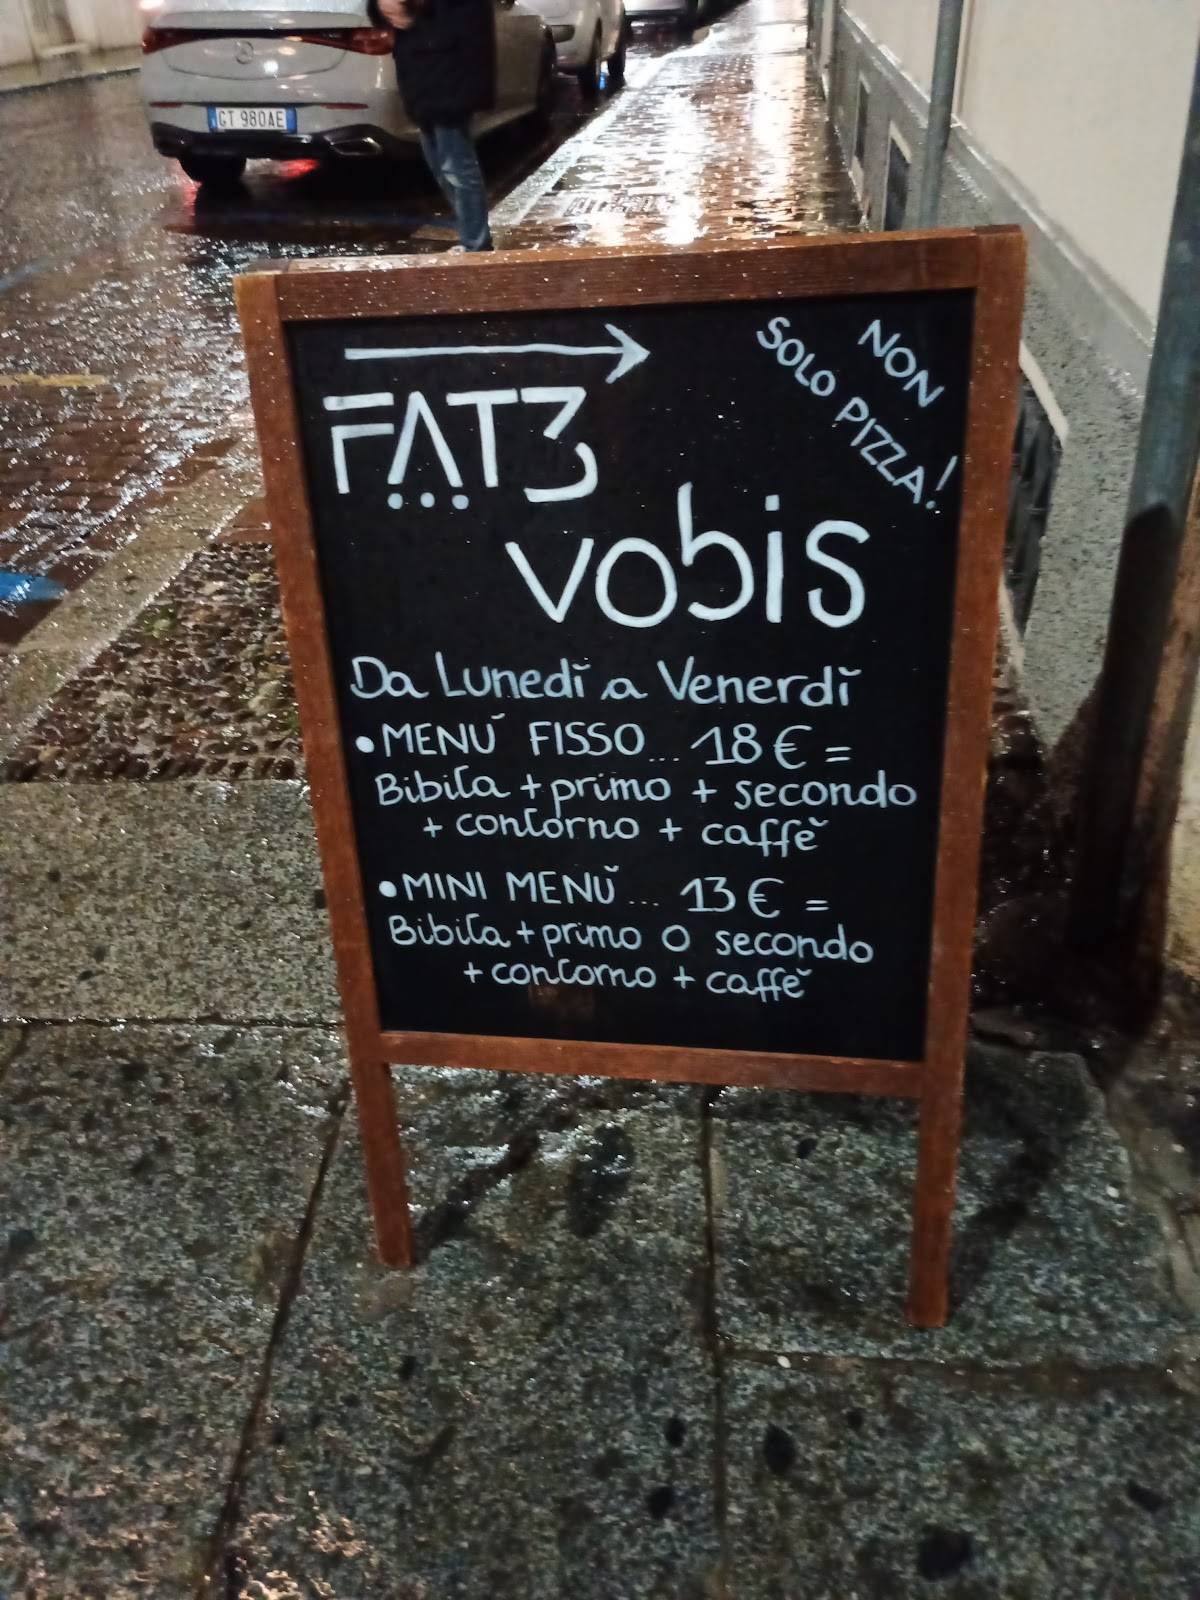 GT 980AE
NON
SOLO PIZZA!
FAT3
vobis
Da Lunedì a Venerdì
• MENÙ FISSO... 18 € =
Bibita + primo + secondo
+ contorno + caffè
• MINI MENÙ... 13 € =
Bibita + primo O secondo
+ contorno + caffè